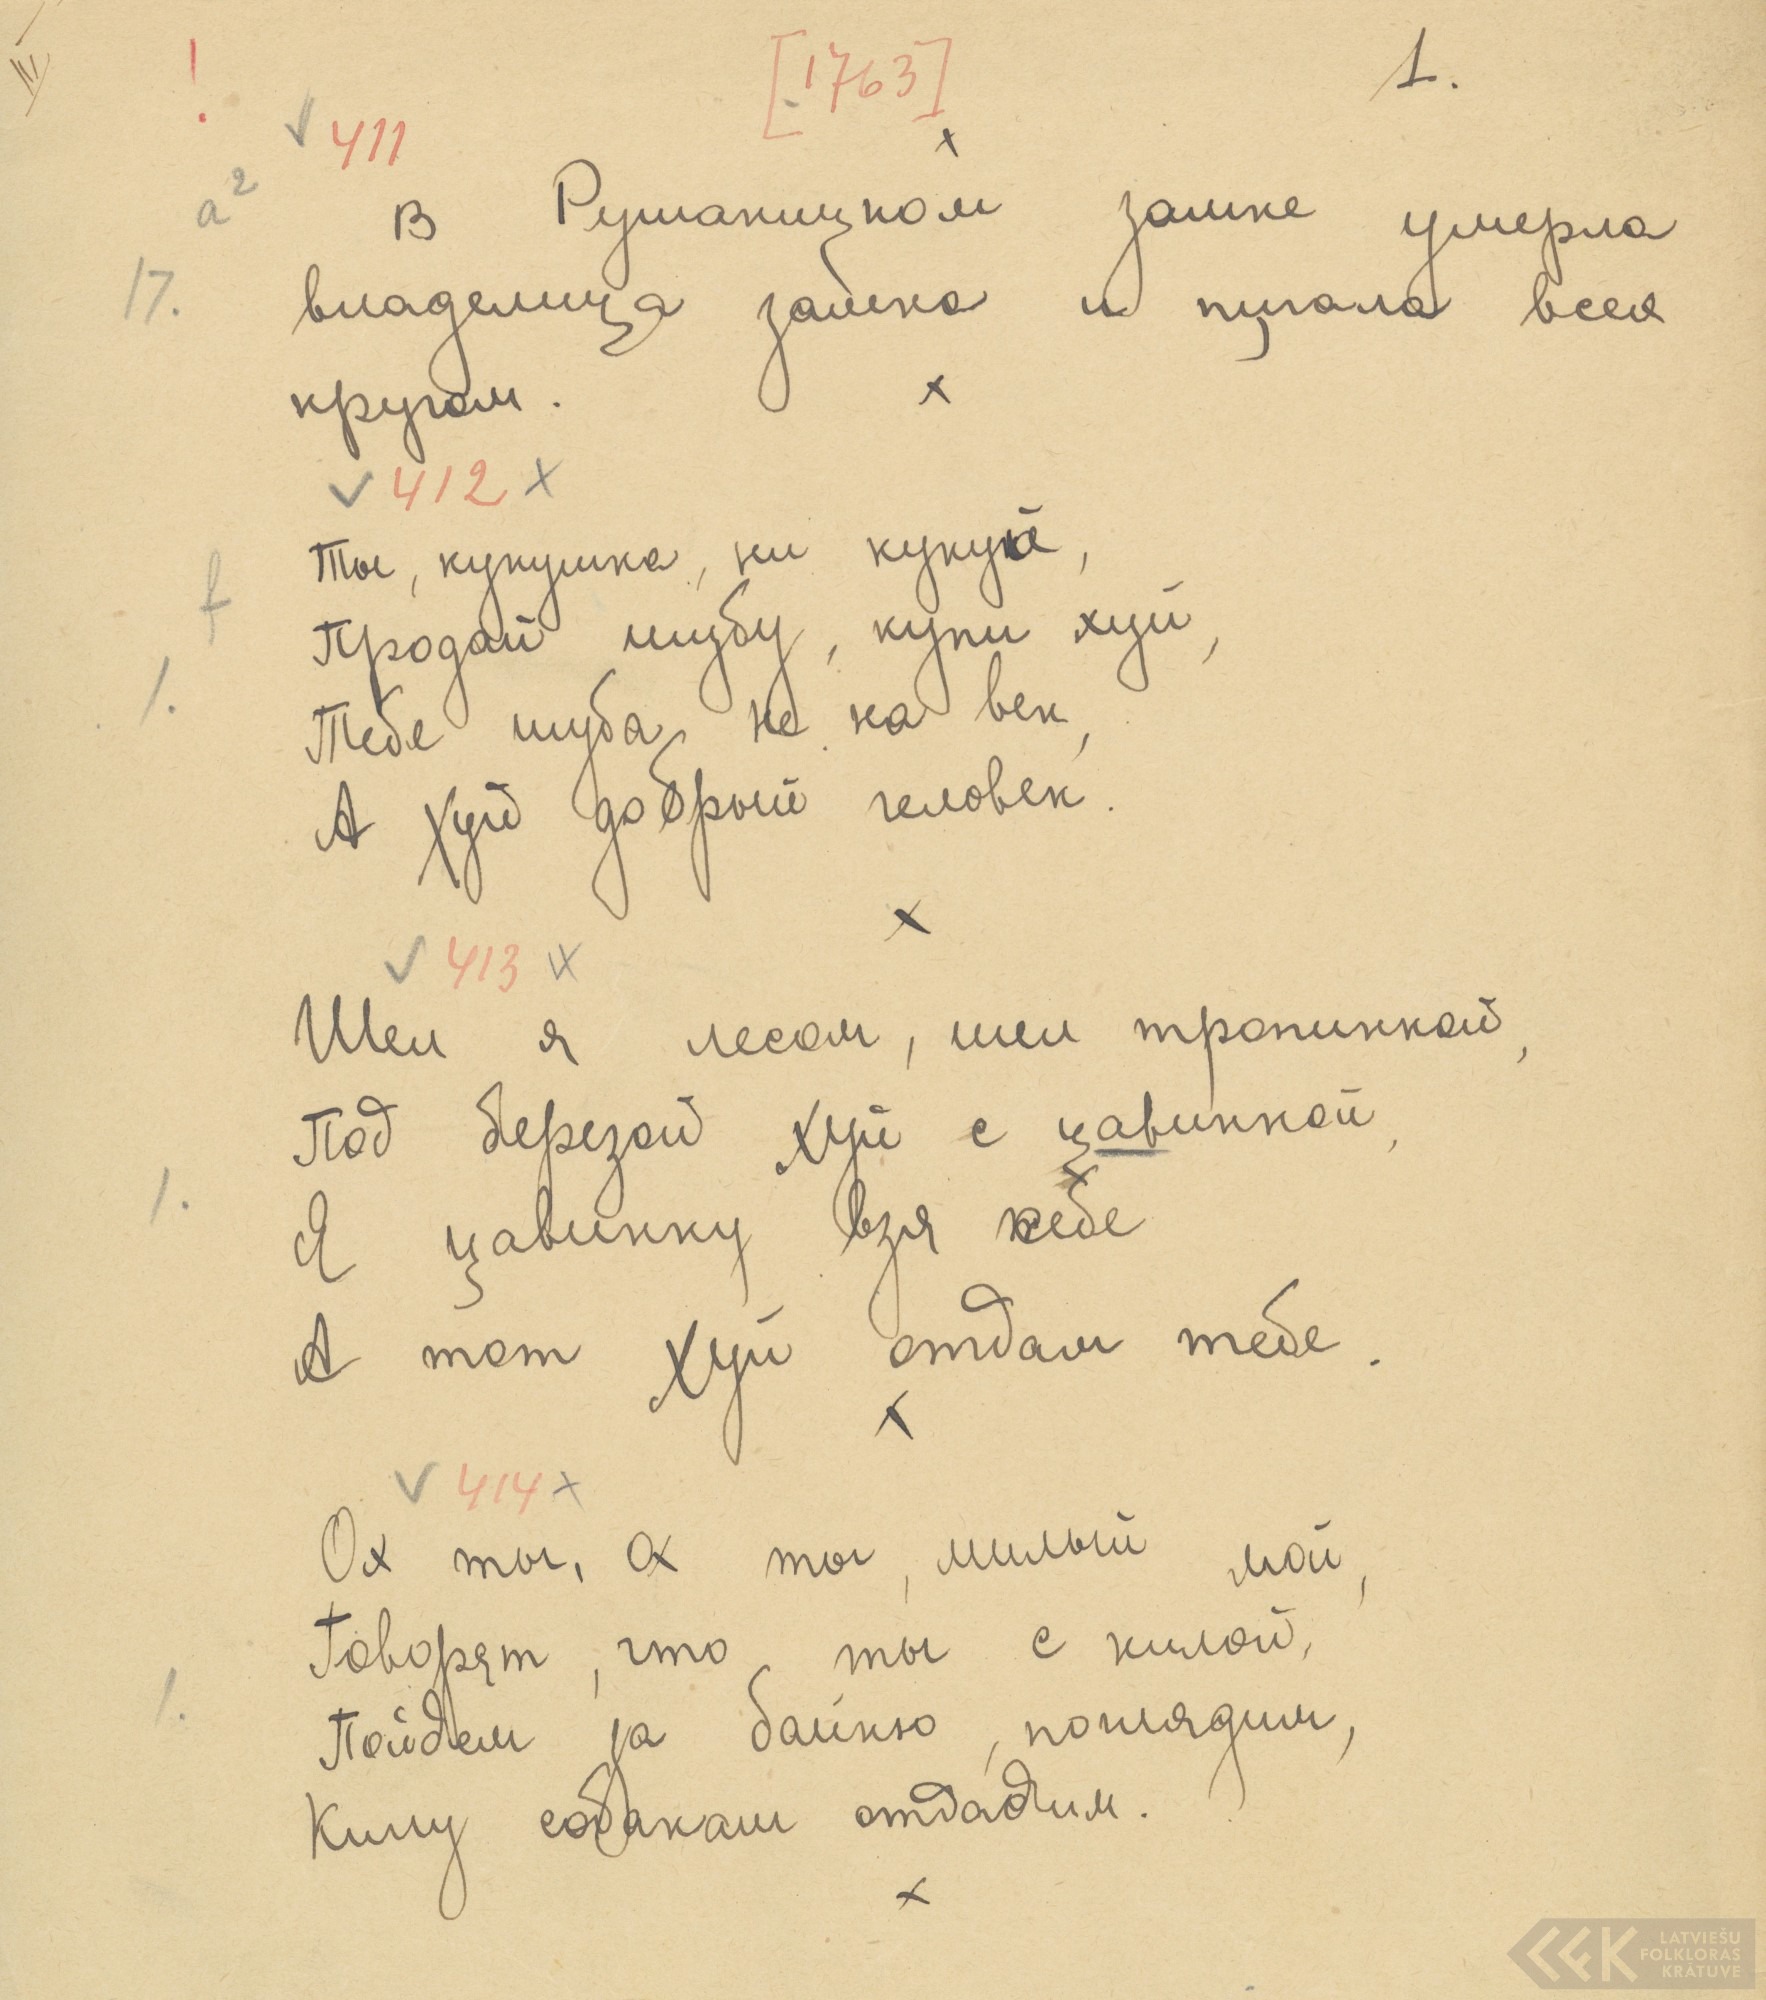 ! [1763] 1.
✓ 411 x
a²
В Рушаницком замке умерла
17.
владелица замка и пугала всех
кругом.
x
✓ 412 x
f
Ты, кукушка, ни кукуй,
Продай шубу, купи хуй,
1.
Тебе шуба не на век,
А хуй добрый человек.
x
✓ 413 x
Шел я лесом, шел тропинкой,
Под березой хуй с цавинкой,
1.
x
Я цавинку взя себе
А тот хуй отдам тебе.
x
✓ 414 x
Ох ты, ох ты, милый мой,
Говорят, что ты с килой,
1.
Пойдем за байню, поглядим,
Килу собакам отдадим.
x
LATVIEŠU
FOLKLORAS
KRĀTUVE